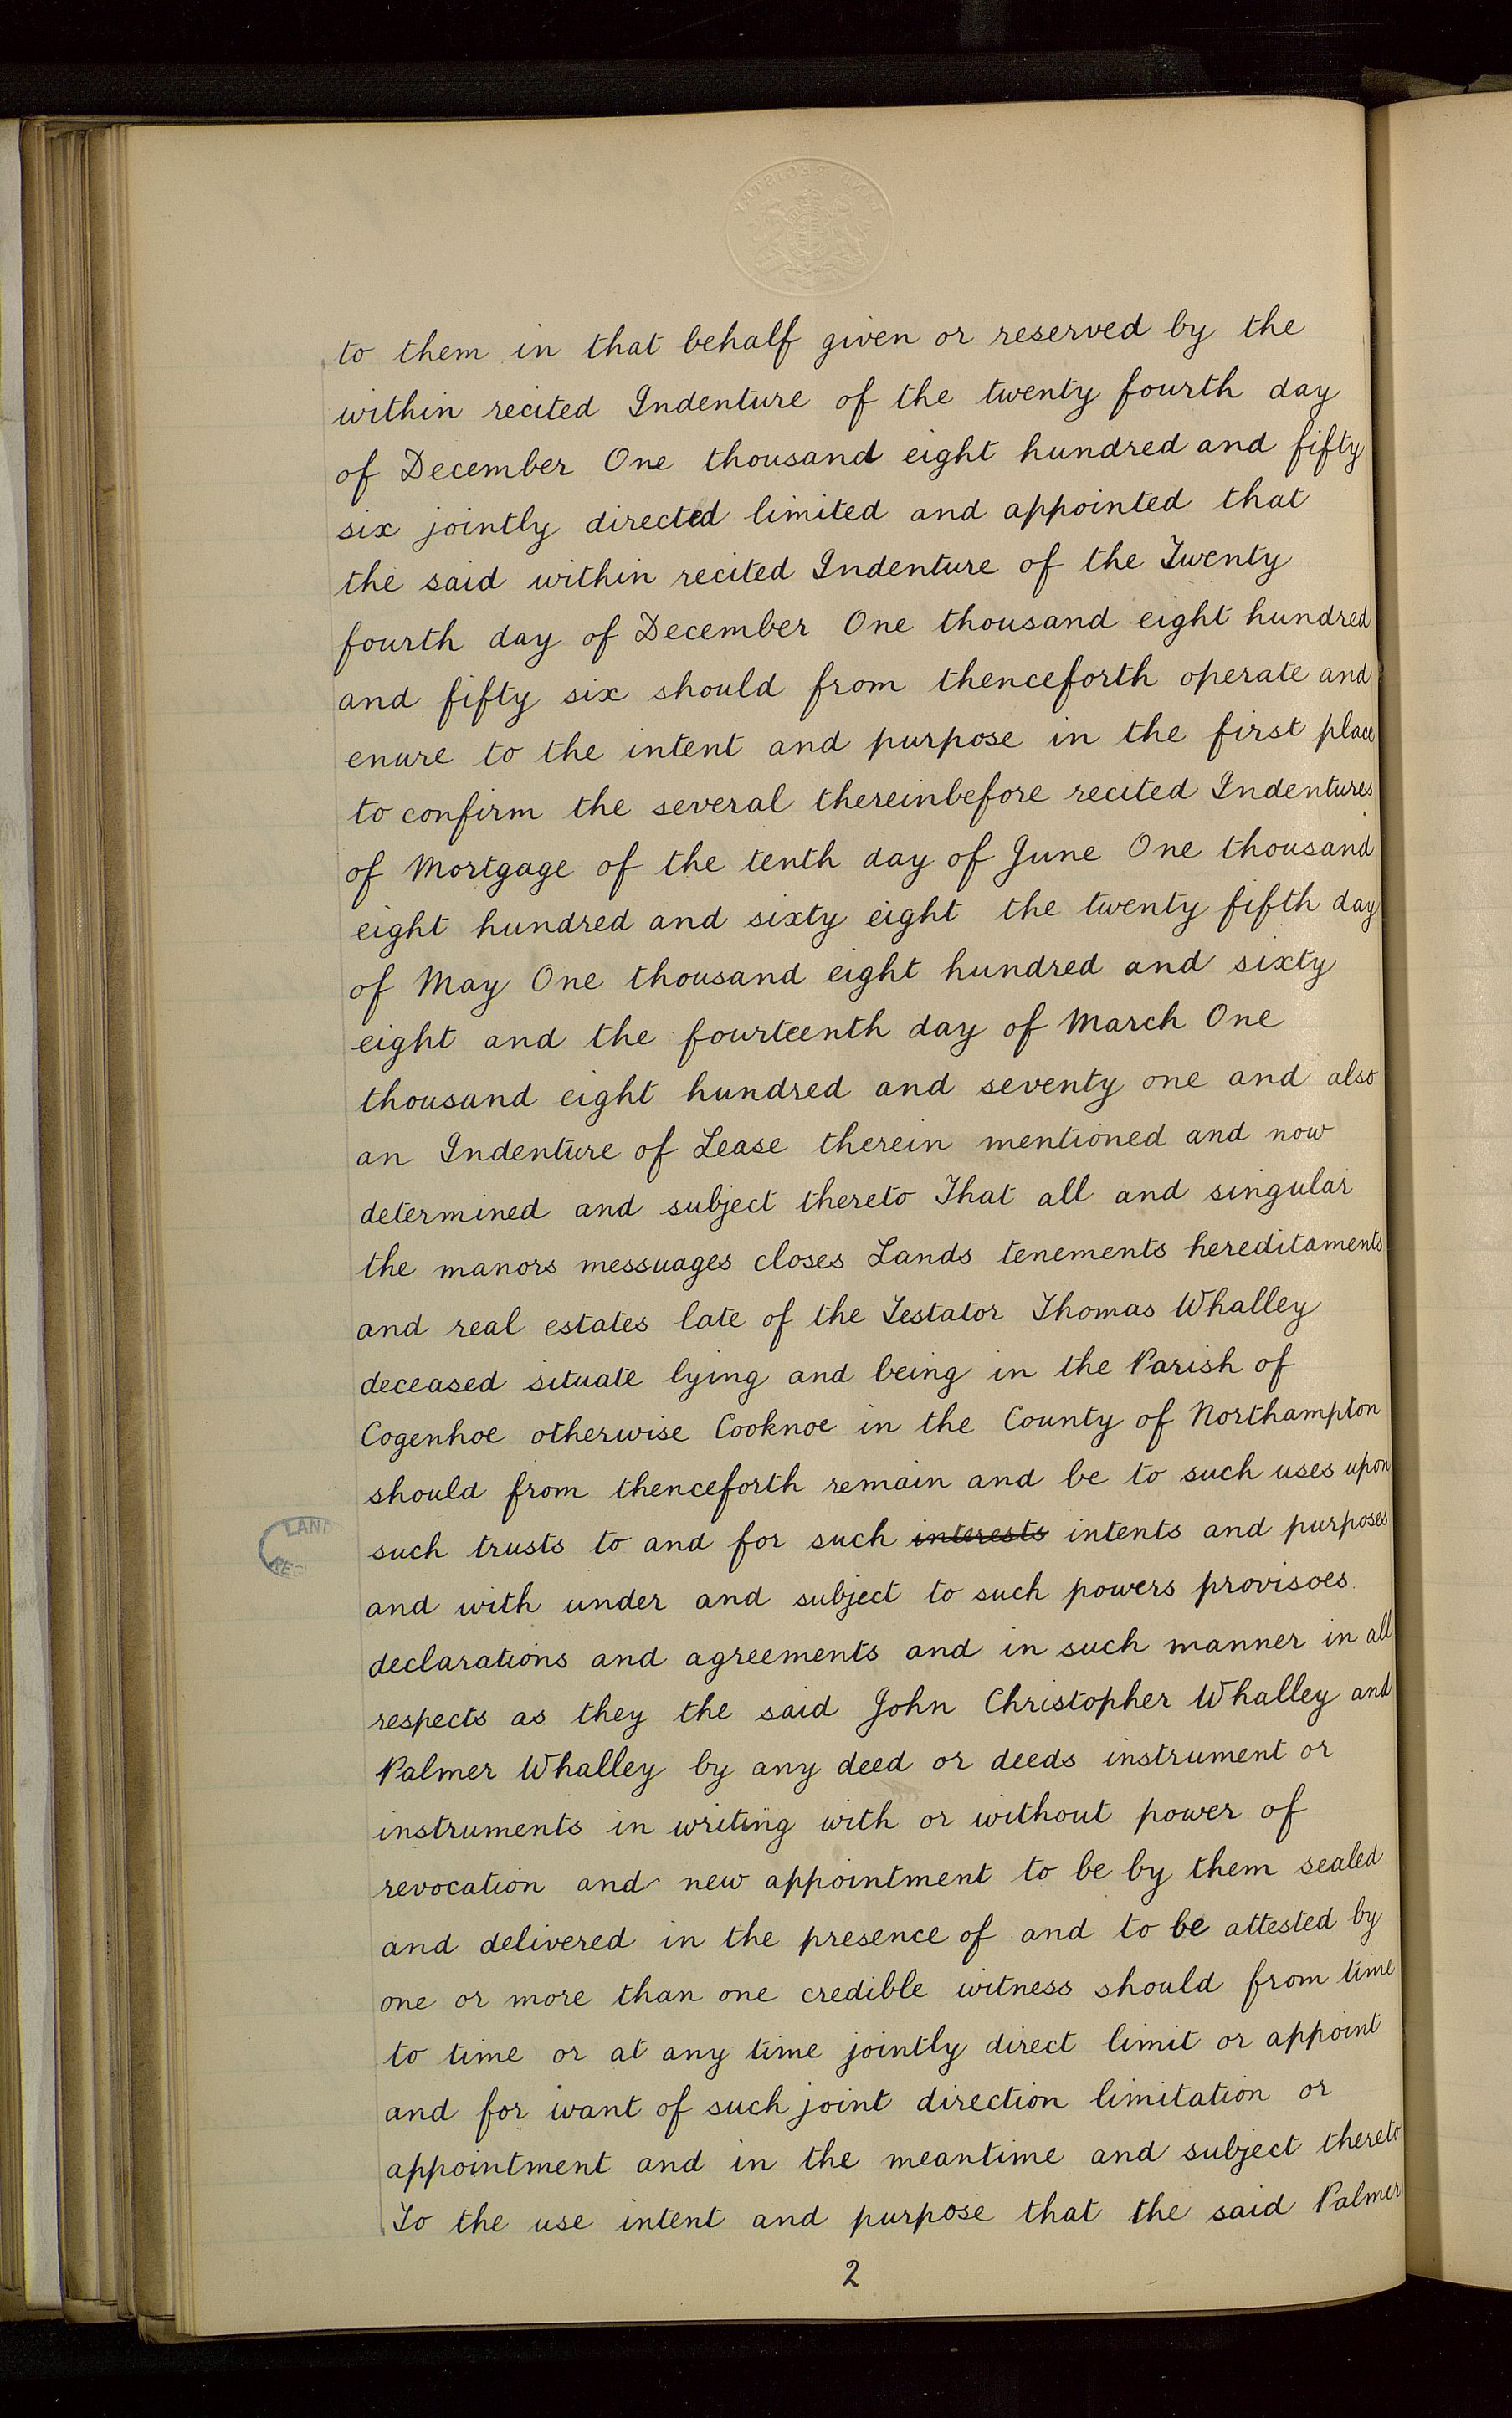 to them in that behalf given or reserved by the
within recited Indenture of the twenty fourth day
of December One thousand eight hundred and fifty
six jointly directed limited and appointed that
the said within recited Indenture of the Twenty
fourth day of December One thousand eight hundred
and fifty six should from thenceforth operate and
enure to the intent and purpose in the first place
to confirm the several thereinbefore recited Indentures
of Mortgage of the tenth day of June One thousand
eight hundred and sixty eight the twenty fifth day
of May One thousand eight hundred and sixty
eight and the fourteenth day of March One
thousand eight hundred and seventy one and also
an Indenture of Lease therein mentioned and now
determined and subject thereto That all and singular
the manors messuages closes Lands tenements hereditaments
and real estates late of the Testator Thomas Whalley
deceased situate lying and being in the Parish of
Cogenhoe otherwise Cooknoe in the County of Northampton
should from thenceforth remain and be to such uses upon
such trusts to and for such interests intents and purposes
and with under and subject to such powers provisoes
declarations and agreements and in such manner in all
respects as they the said John Christopher Whalley and
Palmer Whalley by any deed or deeds instrument or
instruments in writing with or without power of
revocation and new appointment to be by them sealed
and delivered in the presence of and to be attested by
one or more than one credible witness should from time
to time or at any time jointly direct limit or appoint
and for want of such joint direction limitation or
appointment and in the meantime and subject thereto
To the use intent and purpose that the said Palmer
2
LAND